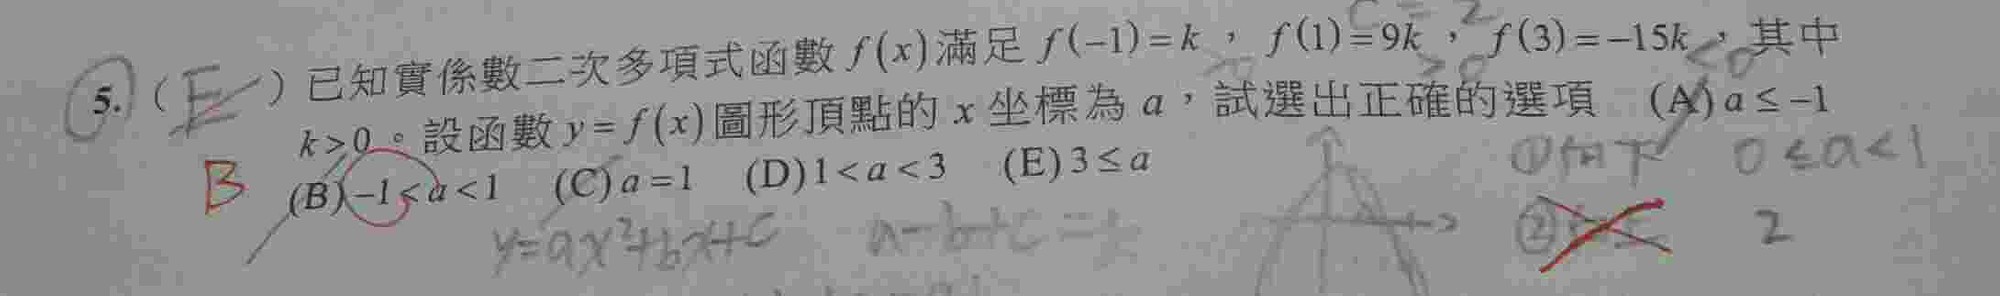 5. ( E ) 已知實係數二次多項式函數 f(x) 滿足 f(-1)=k , f(1)=9k , f(3)=-15k , 其中
k>0。設函數 y=f(x) 圖形頂點的 x 坐標為 a,試選出正確的選項 (A) a≤-1
B (B) -1<a<1 (C) a=1 (D) 1<a<3 (E) 3≤a
①向下 0≤a<1
y=ax²+bx+c a-b+c=
② 2